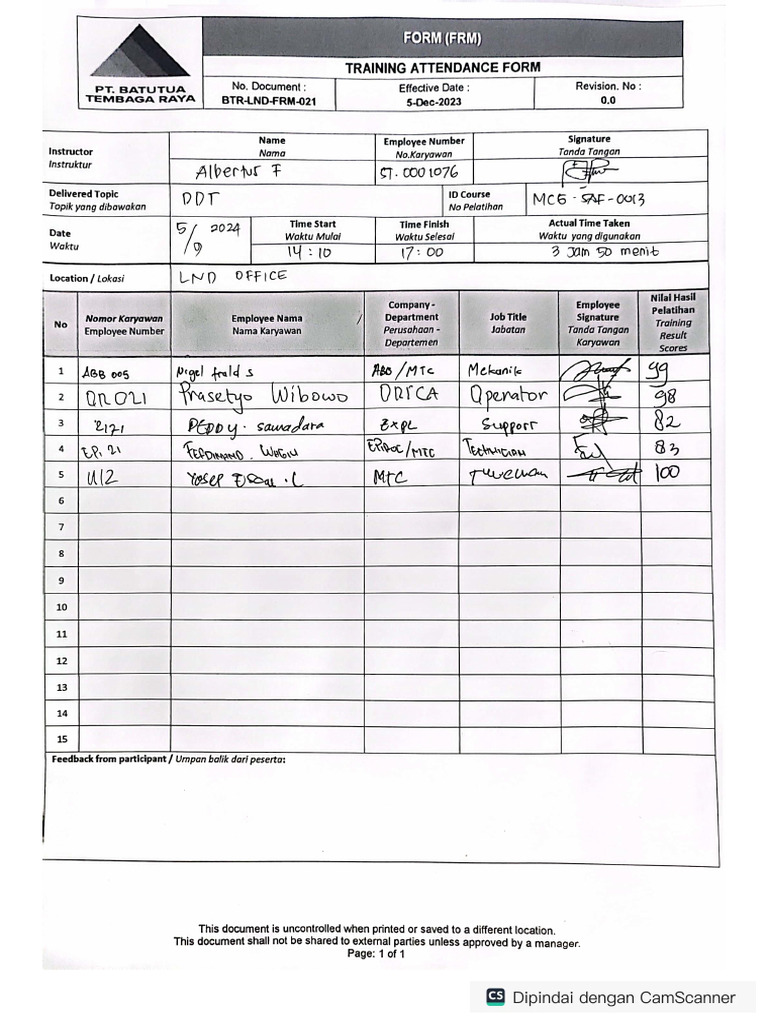 FORM (FRM)
PT. BATUTUA
TEMBAGA RAYA
TRAINING ATTENDANCE FORM
No. Document : Effective Date : Revision. No :
BTR-LND-FRM-021 5-Dec-2023 0.0
Instructor
Instruktur
Name Employee Number Signature
Nama No.Karyawan Tanda Tangan
Albertus F ST.0001076
Delivered Topic DDT ID Course MCG-SAF-0013
Topik yang dibawakan No Pelatihan
Date 5/9 2024 Time Start Time Finish Actual Time Taken
Waktu Waktu Mulai Waktu Selesai Waktu yang digunakan
14:10 17:00 3 Jam 50 menit
Location / Lokasi LND OFFICE
No Nomor Karyawan Employee Name / Company - Job Title Employee Nilai Hasil
Employee Number Nama Karyawan Department Jabatan Signature Pelatihan
Perusahaan - Tanda Tangan Training
Departemen Karyawan Result
Scores
1 ABB 005 Nigel frald s ABO/MTC Mekanik 99
2 OR021 Prasetyo Wibowo ORICA Operator 98
3 2121 DEDDY. sawadara EXPL Support 82
4 EPI.21 FERDINAND. EPIROC/MTC TECHNICIAN 83
5 U12 Yosep MTC 100
6
7
8
9
10
11
12
13
14
15
Feedback from participant / Umpan balik dari peserta:
This document is uncontrolled when printed or saved to a different location.
This document shall not be shared to external parties unless approved by a manager.
Page: 1 of 1
CS Dipindai dengan CamScanner